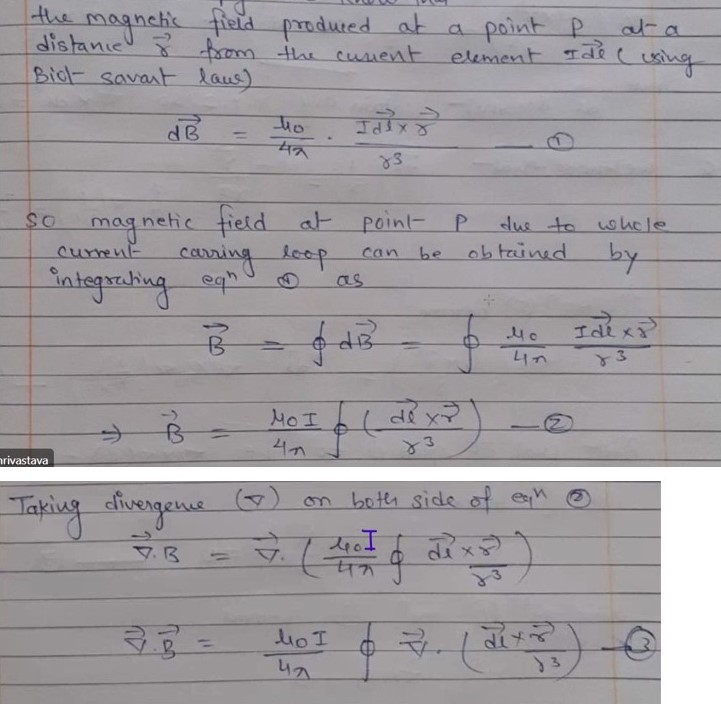 the magnetic field produced at a point P at a
distance r⃗ from the current element Idl⃗ ( using
Biot savart laws)
dB⃗ = μ0/4π . Idl⃗ × r⃗ / r3 — ①
so magnetic field at point P due to whole
current carring loop can be obtained by
integrating eqn ① as
B⃗ = ∮ dB⃗ = ∮ μ0/4π Idl⃗ × r⃗ / r3
⇒ B⃗ = μ0 I/4π ∮ ( dl⃗ × r⃗ / r3 ) — ②
rivastava
Taking divergence (∇) on both side of eqn ②
∇⃗.B = ∇⃗. ( μ0 I/4π ∮ dl⃗ × r⃗ / r3 )
∇⃗.B⃗ = μ0 I/4π ∮ ∇⃗. ( dl⃗ × r⃗ / r3 ) — ③